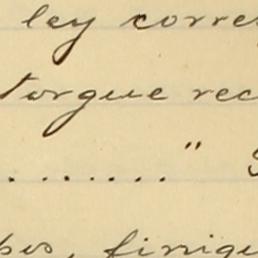 ley corre
torque rec
........"
pes, finiqu